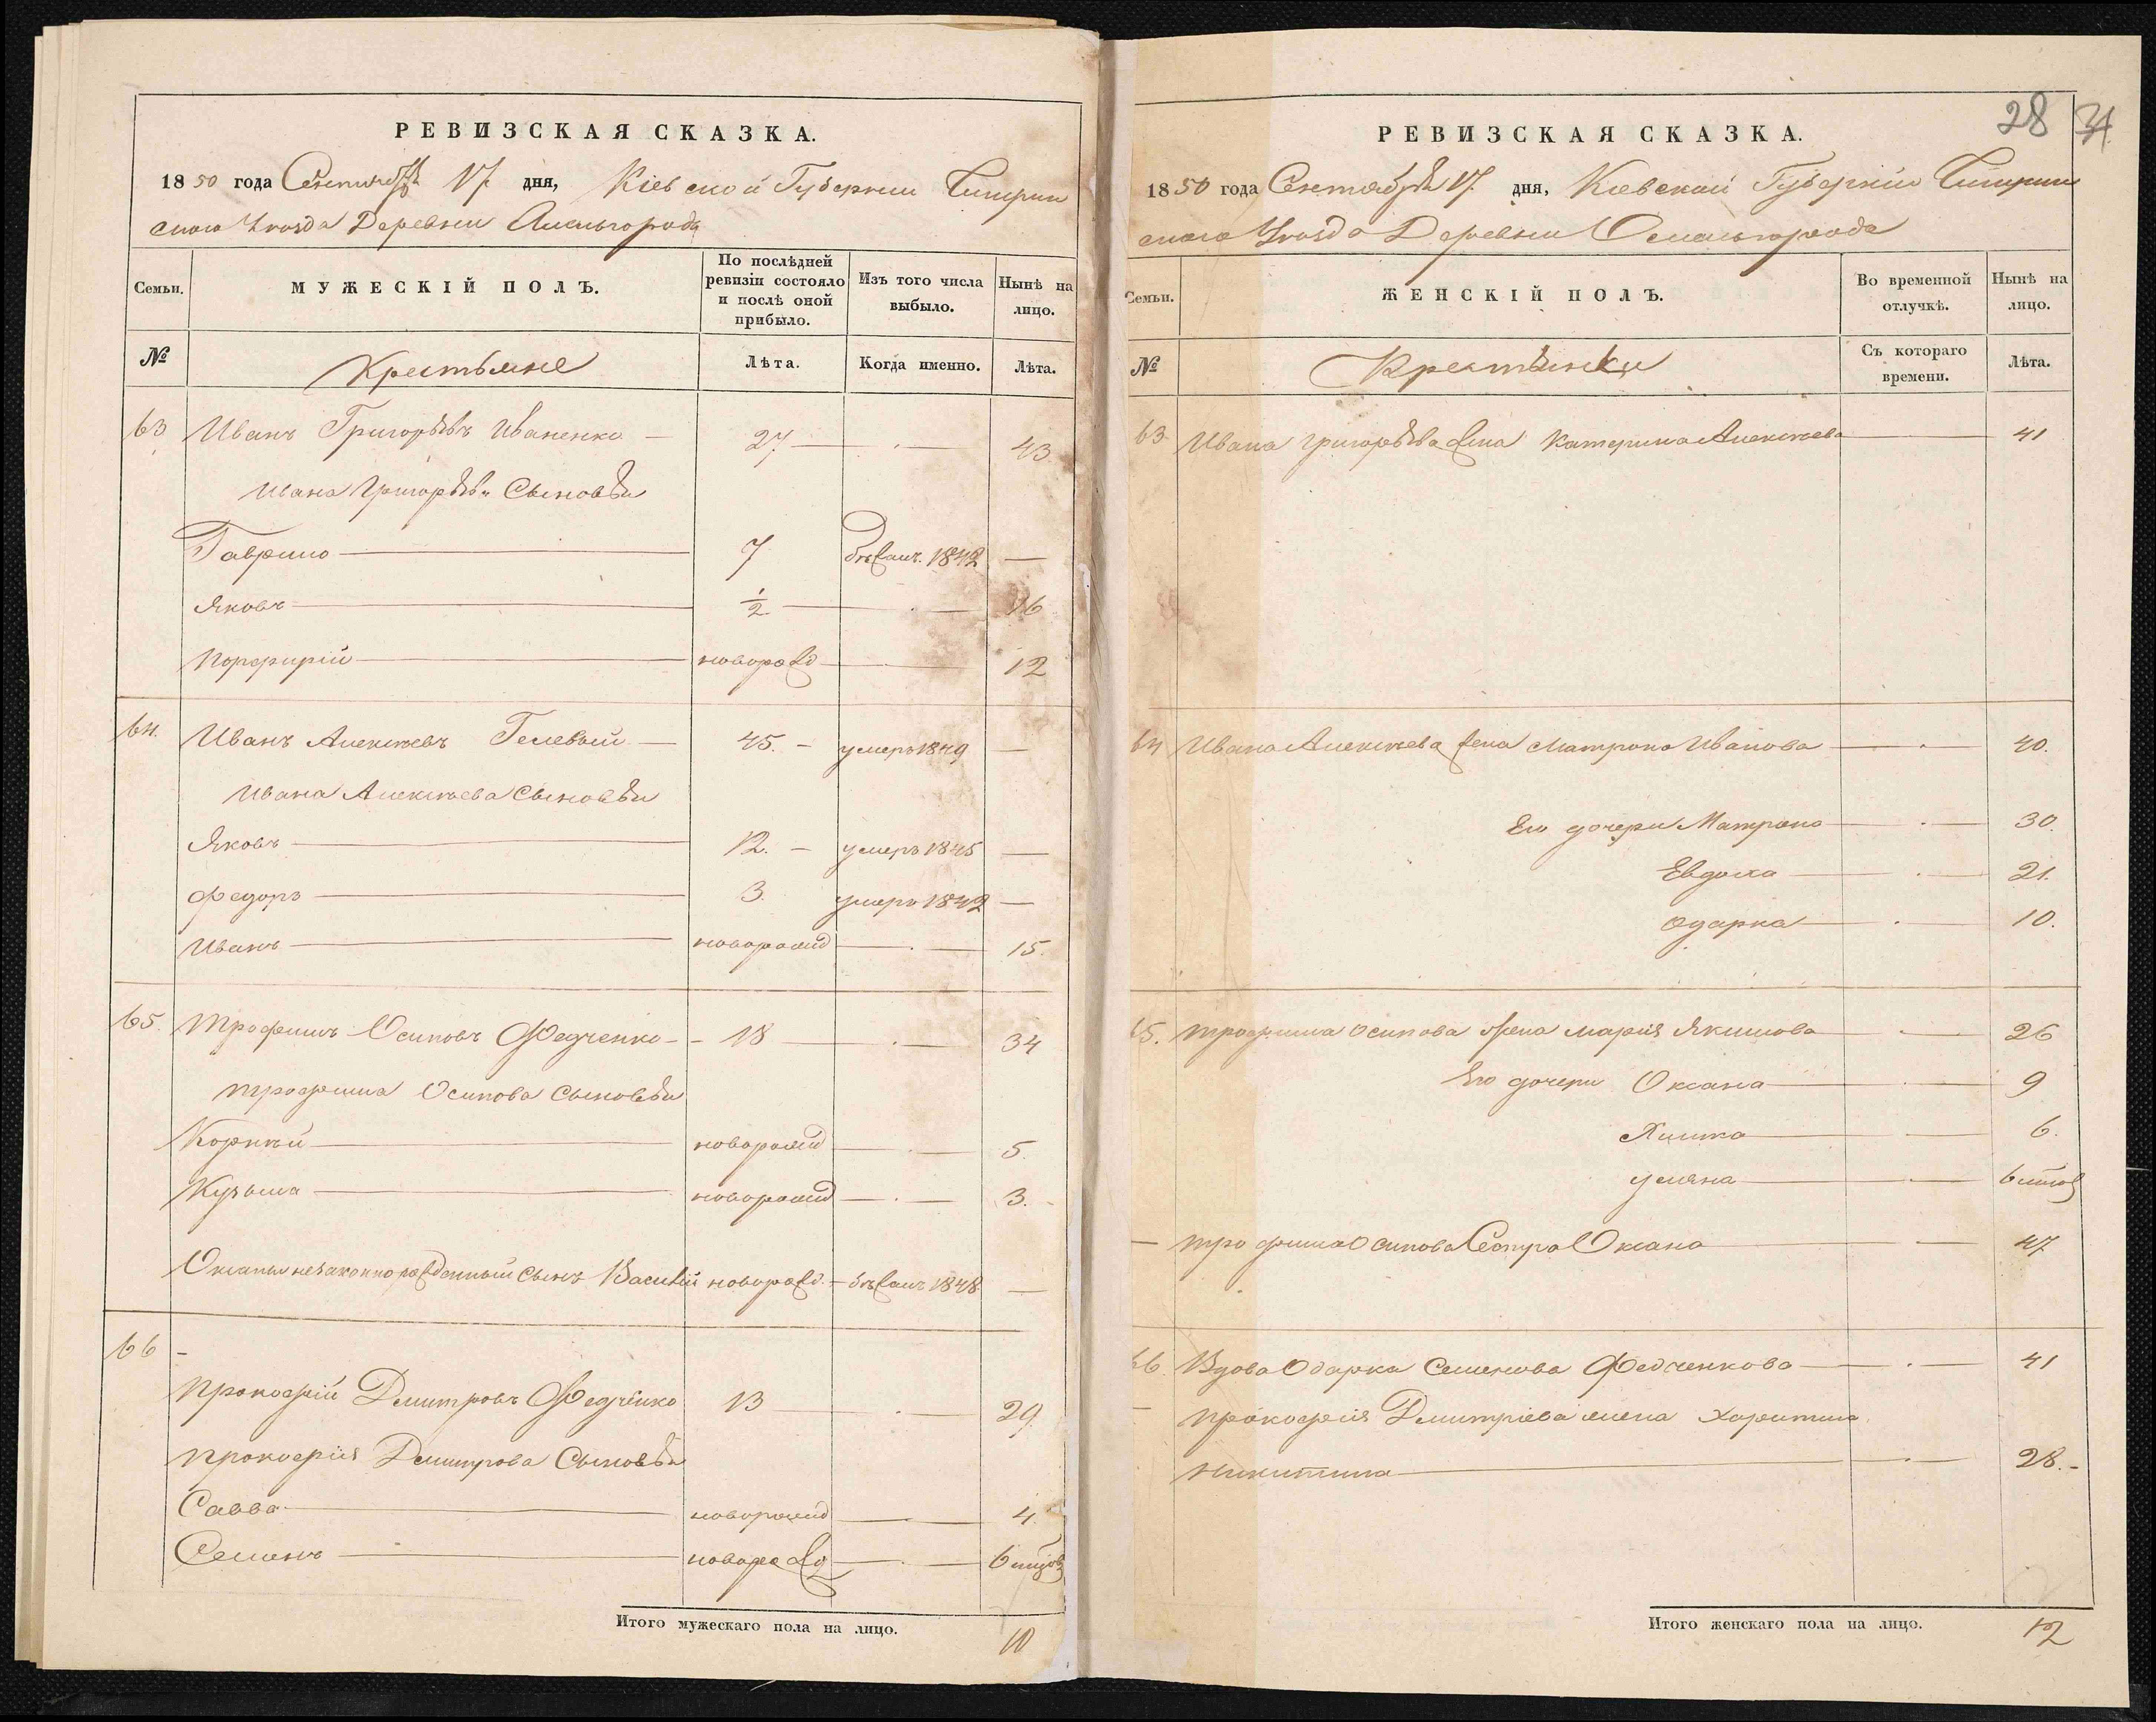 РЕВИЗСКАЯ СКАЗКА.
1850 года Сентября 17 дня, Кіевской Губерніи Чигирин
скаго Уѣзда Деревни
Семьи.
МУЖЕСКІЙ ПОЛЪ.
По послѣдней
ревизіи состояло
и послѣ оной
прибыло.
Изъ того числа
выбыло.
Нынѣ на
лицо.
№
Крестьяне
Лѣта.
Когда именно.
Лѣта.
63 Иванъ Григорьевъ Иваненко 27 43
Ивана Григорьева Сыновья
Гаврило 7 бѣжалъ 1842
Яковъ 1/2 16
Порфирій новорожд 12
64. Иванъ Алексѣевъ Гелевый 45. умеръ 1849
Ивана Алексѣева Сыновья
Яковъ 12. умеръ 1845
Федоръ 3. умеръ 1842
Иванъ новорожд 15.
65. Трофимъ Осиповъ Федченко 18 34
Трофима Осипова Сыновья
Корнѣй новорожд 5.
Кузьма новорожд 3.
Оксаны незаконнорожденный сынъ Василій новорожд. бѣжалъ 1848
66
Прокофій Дмитровъ Федченко 13 29
Прокофія Дмитрова Сыновья
Савва новорожд 4.
Семенъ новорожд 6 мѣсяцов
Итого мужескаго пола на лицо. 10
28
31.
РЕВИЗСКАЯ СКАЗКА.
1850 года Сентября 17. дня, Кіевской Губерніи Чигирин
скаго Уѣзда Деревни
Семьи.
ЖЕНСКІЙ ПОЛЪ.
Во временной
отлучкѣ.
Нынѣ на
лицо.
№
Крестьянки
Съ котораго
времени.
Лѣта.
63 Ивана Григорьева жена Катерина Алексѣева 41
64 Ивана Алексѣева жена Матрона Иванова 40.
Его дочери Матрона 30.
Евдока 21.
Одарка 10.
65. Трофима Осипова жена Марія Якимова 26
Его дочери Оксана 9
Химка 6.
Уляна 6 мѣсяцов
Трофима Осипова Сестра Оксана 47
66. Вдова Одарка Семенова Федченкова 41
Прокофія Дмитріева жена Харитина
Никитина 28.
Итого женскаго пола на лицо. 12